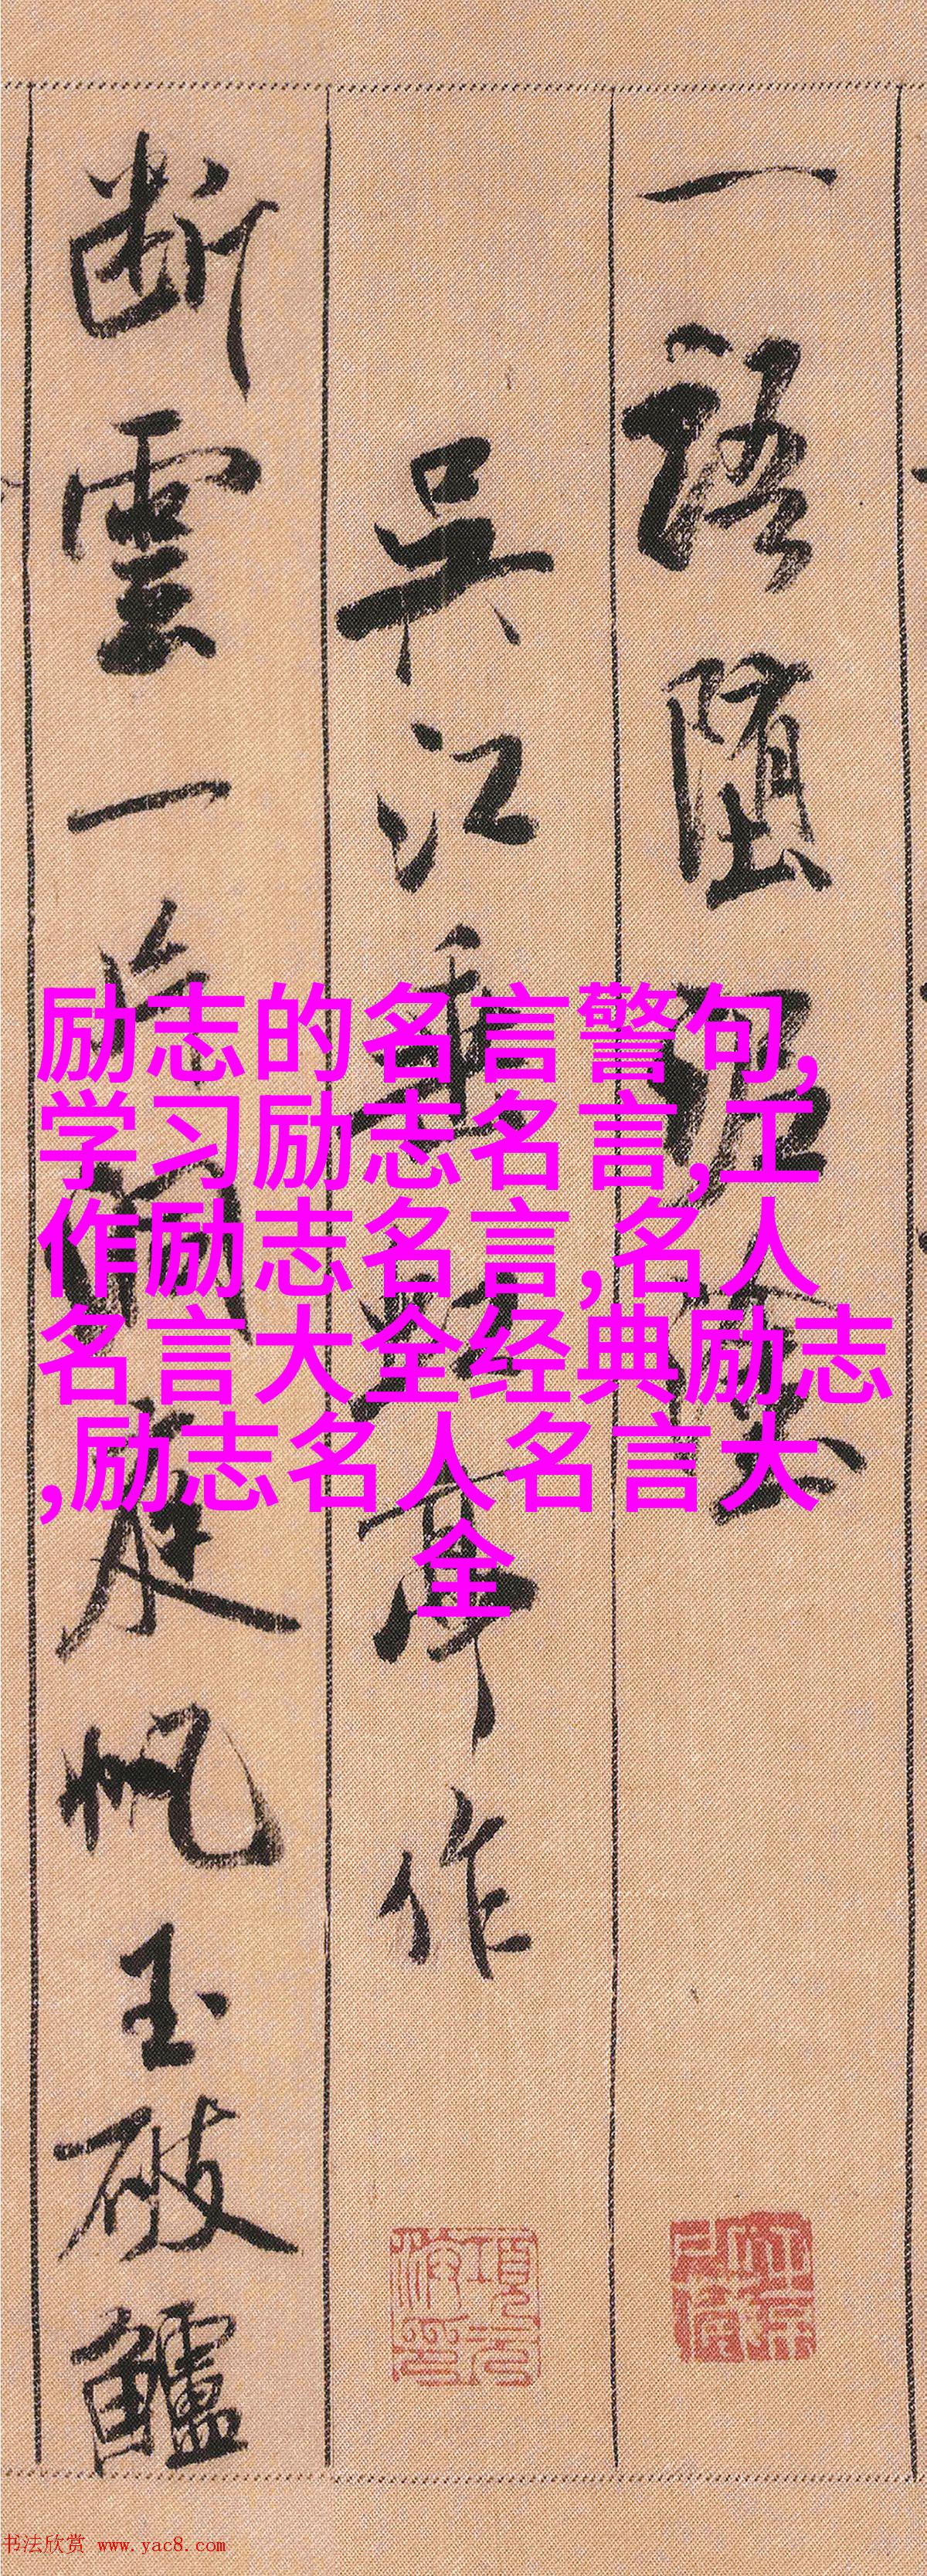 一語墮泥塗
吳江垂虹亭作
斷雲一片洞庭帆玉破鱸
励志的名言警句,
学习励志名言,工
作励志名言,名人
名言大全经典励志
,励志名人名言大
全
书法欣赏 www.yac8.com